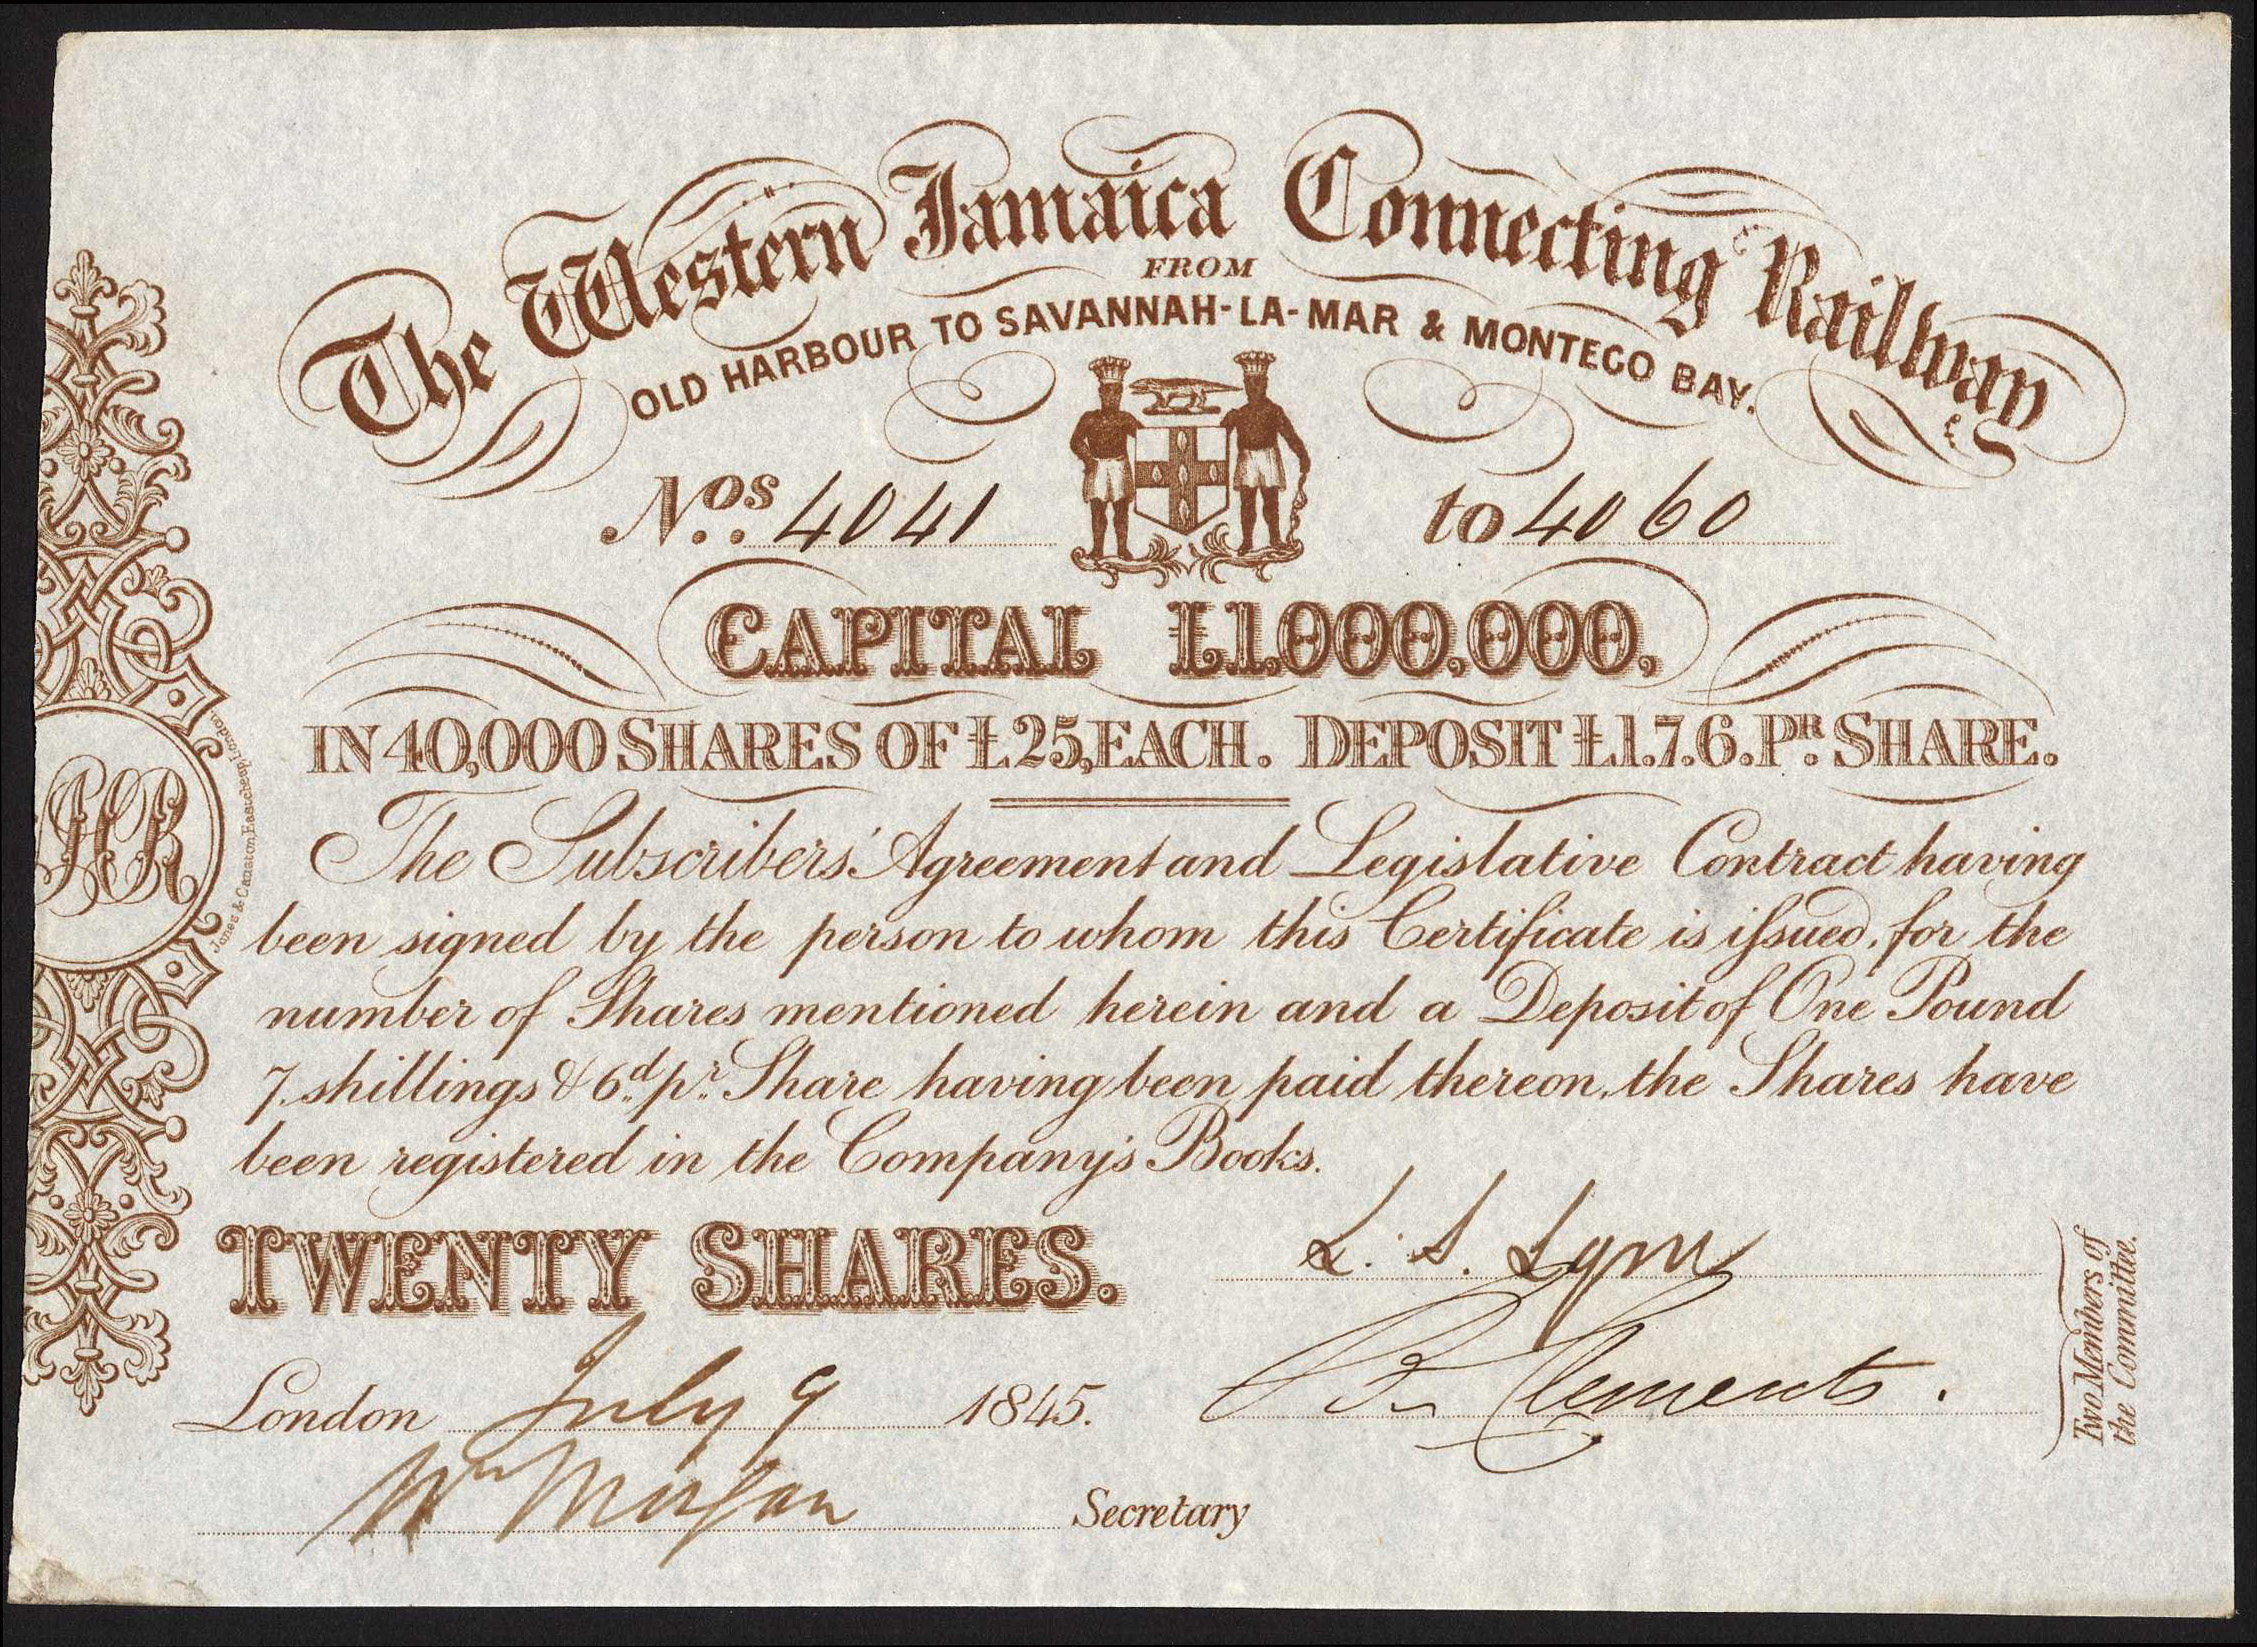 The Western Jamaica Connecting Railway
FROM
OLD HARBOUR TO SAVANNAH-LA-MAR & MONTEGO BAY.
Nos. 4041 to 4060
CAPITAL £1,000,000,
IN 40,000 SHARES OF £25, EACH. DEPOSIT £1.7.6. Pr. SHARE.
The Subscribers' Agreement and Legislative Contract having
been signed by the person to whom this Certificate is issued, for the
number of Shares mentioned herein and a Deposit of One Pound
7 shillings & 6d. pr. Share having been paid thereon, the Shares have
been registered in the Company's Books.
TWENTY SHARES.
London July 9 1845.
Wm Morgan Secretary
Clements.
Two Members of
the Committee.
Jones & Causton, Eastcheap, London.